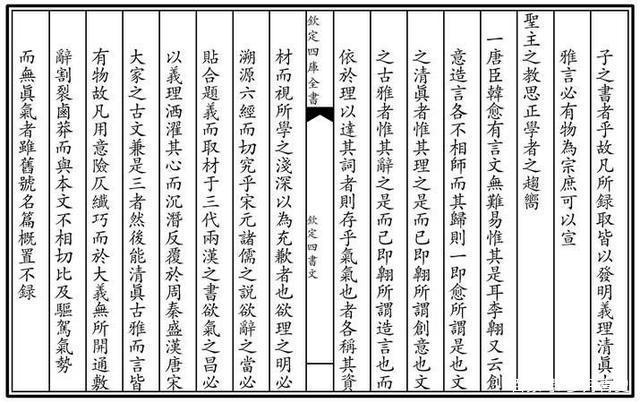 子之書者乎故凡所録取皆以發明義理清眞
雅言必有物為宗庶可以宣
聖主之教思正學者之趨嚮
一唐臣韓愈有言文無難易惟其是耳李翺又云創
意造言各不相師而其歸則一即愈所謂是也文
之清眞者惟其理之是而已即翺所謂創意也文
之古雅者惟其辭之是而已即翺所謂造言也而
依於理以達其詞者則存乎氣氣也者各稱其資
欽定四庫全書
欽定四書文
材而視所學之淺深以為充歉者也欲理之明必
溯源六經而切究乎宋元諸儒之説欲辭之當必
貼合題義而取材于三代兩漢之書欲氣之昌必
以義理洒濯其心而沉潛反覆於周秦盛漢唐宋
大家之古文兼是三者然後能清眞古雅而言皆
有物故凡用意險仄纖巧而於大義無所開通敷
辭割裂鹵莽而與本文不相切比及驅駕氣勢
而無眞氣者雖舊號名篇概置不録